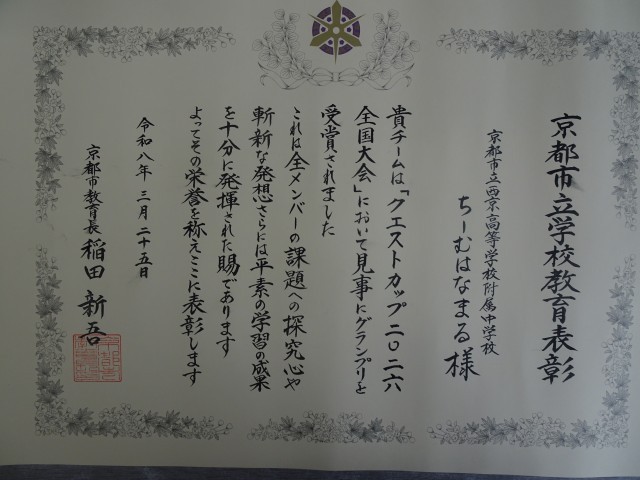 京都市立学校教育表彰
京都市立西京高等学校附属中学校
ちーむはなまる 様
貴チームは「クエストカップ二〇二六
全国大会」において見事にグランプリを
受賞されました
これは全メンバーの課題への探究心や
斬新な発想さらには平素の学習の成果
を十分に発揮された賜であります
よってその栄誉を称えここに表彰します
令和八年三月二十五日
京都市教育長 稲田新吾